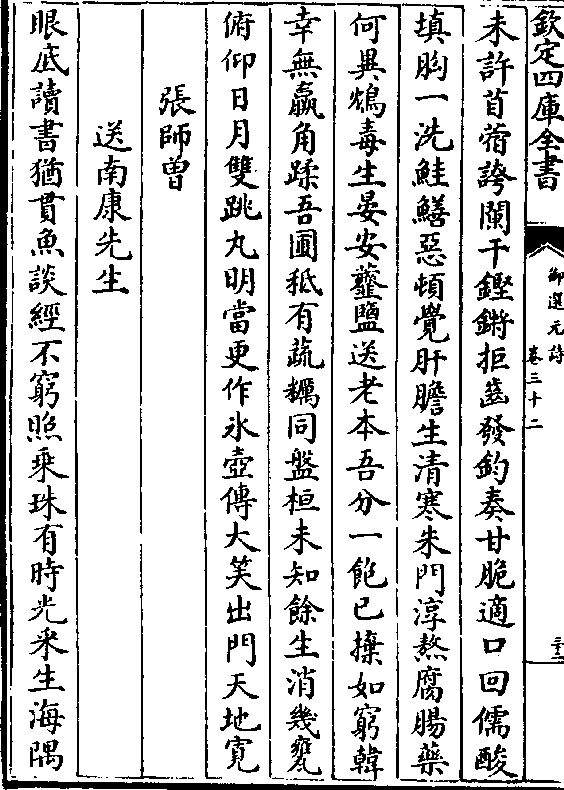 欽定四庫全書
御選元詩
卷三十二
未許苜蓿誇闌干鏗鏘拒齒發鈞奏甘脆適口回儒酸
填胸一洗鮭鱔惡頓覺肝膽生清寒朱門淳熬腐腸藥
何異鴆毒生晏安虀鹽送老本吾分一飽已擽如窮韓
幸無羸角蹂吾圃秪有蔬糲同盤桓未知餘生消幾甕
俯仰日月雙跳丸明當更作氷壺傳大笑出門天地寛
張師曾
送南康先生
眼底讀書猶貫魚談經不窮照乗珠有時光采生海隅